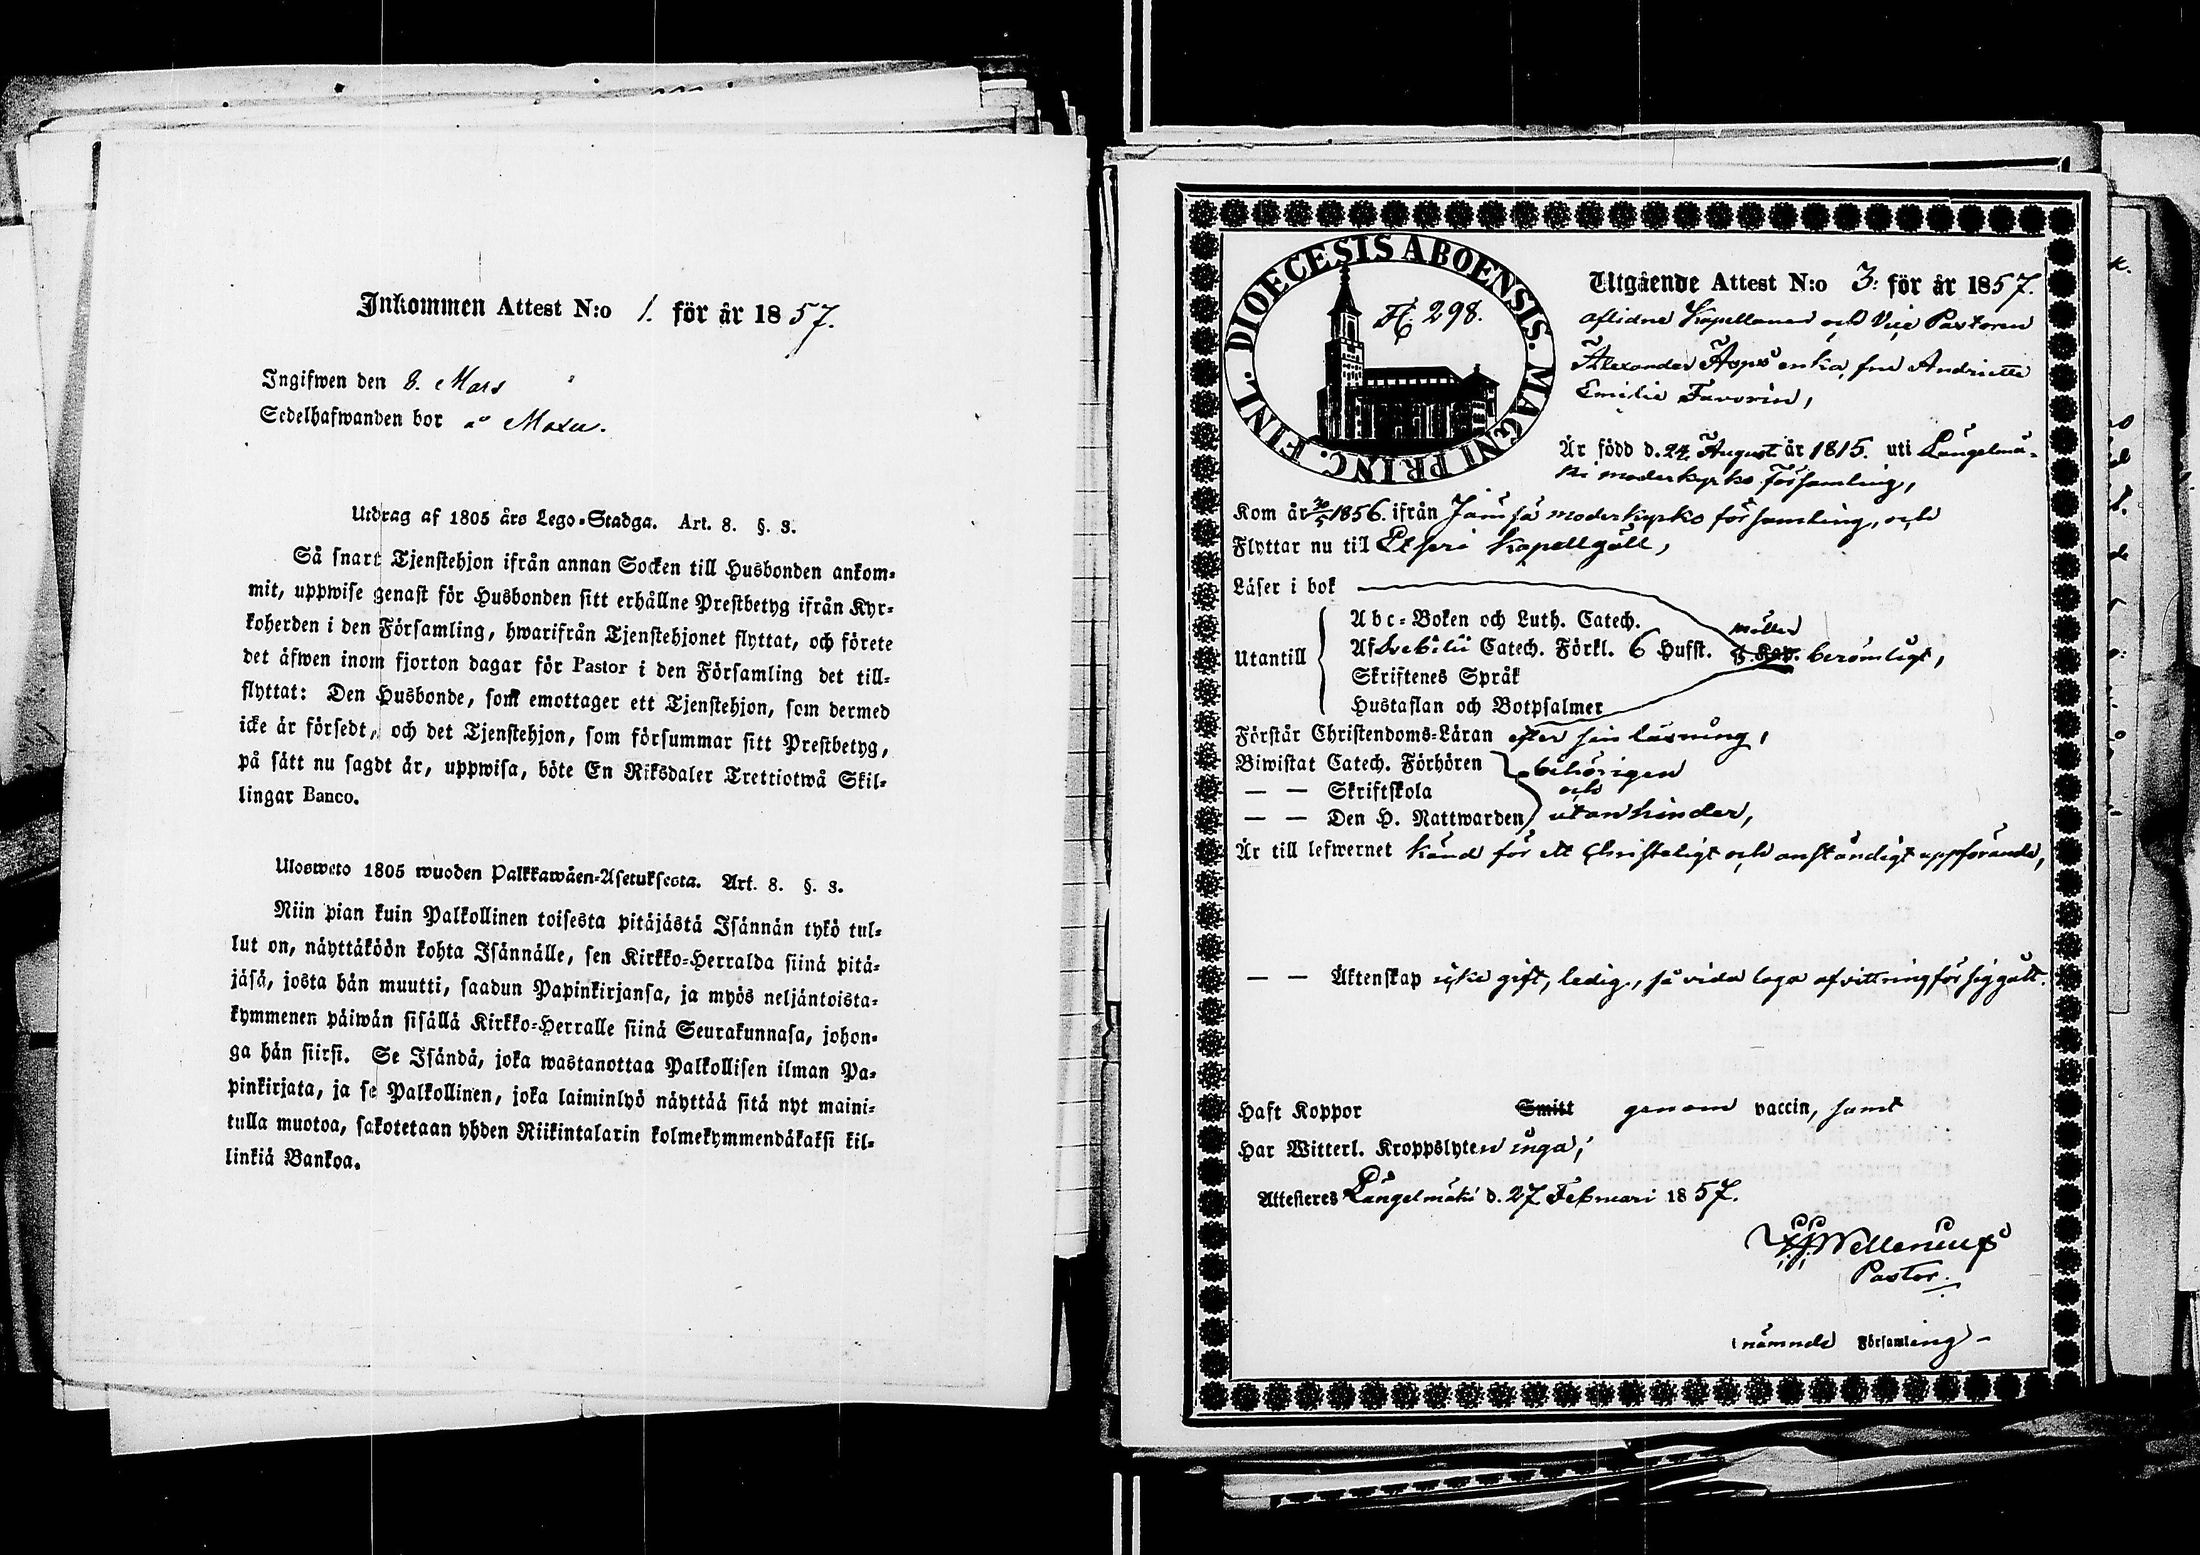 Inkommen Attest N:o 1. för år 1857.
Ingifwen den 8. Mars
Sedelhafwanden bor å Moxu.
Utdrag af 1805 års Lego-Stadga. Art. 8. §. 3.
Så snart Tjenstehjon ifrån annan Socken till Husbonden ankom-
mit, uppwise genast för Husbonden sitt erhållne Prestbetyg ifrån Kyr-
koherden i den Församling, hwarifrån Tjenstehjonet flyttat, och förete
det äfwen inom fjorton dagar för Pastor i den Församling det till-
flyttat: Den Husbonde, som emottager ett Tjenstehjon, som dermed
icke är försedt, och det Tjenstehjon, som försummar sitt Prestbetyg,
på sätt nu sagdt är, uppwisa, böte En Riksdaler Trettiotwå Skil-
lingar Banco.
Ulosweto 1805 wuoden Palkkawäen-Asetuksesta. Art. 8. §. 3.
Niin pian kuin Palkollinen toisesta pitäjästä Isännän tykö tul-
lut on, näyttäköön kohta Isännälle, sen Kirkko-Herralda siinä pitä-
jäsä, josta hän muutti, saadun Papinkirjansa, ja myös neljäntoista-
kymmenen päiwän sisällä Kirkko-Herralle siinä Seurakunnasa, johon-
ga hän siirsi. Se Isändä, joka wastanottaa Palkollisen ilman Pa-
pinkirjata, ja se Palkollinen, joka laiminlyö näyttää sitä nyt maini-
tulla muotoa, sakotetaan yhden Riikintalarin kolmekymmendäkaksi kil-
linkiä Bankoa.
DIOECESIS ABOENSIS. MAGNI PRINC. FINL.
298.
Utgående Attest N:o 3: för år 1857.
aflidne Kapellanen och Vice Pastoren
Alexander Asps enka, fru Andriette
Emilie Favorin,
Är född d. 24. August år 1815. uti Längelmä-
ki moderkyrko församling,
Kom år 20/5 1856. ifrån Jämsä moderkyrko församling, och
Flyttar nu til Etseri Kapellgäll,
Läser i bok
Utantill
Abc-Boken och Luth. Catech.
Af Svebilii Catech. Förkl. 6 Hufst. berömligt,
Skriftenes Språk
Hustaflan och Botpsalmer
Förstår Christendoms-Läran efter sin läsning,
Biwistat Catech. Förhören behörigen
— — Skriftskola och
— — Den H. Nattwarden utan hinder,
Är till lefwernet känd för ett Christeligt och anständigt uppförande,
— — Äktenskap icke gift, ledig, så vida laga afvittring för sig gått.
Haft Koppor Smitt genom vaccin, samt
Har Witterl. Kroppslyten inga;
Attesteres Längelmäki d. 27 Februari 1857.
Pastor.
i nämnde Församling -